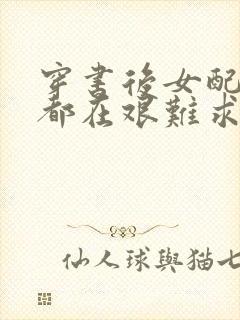 穿書後女配
都在艱難求
仙人球與猫七